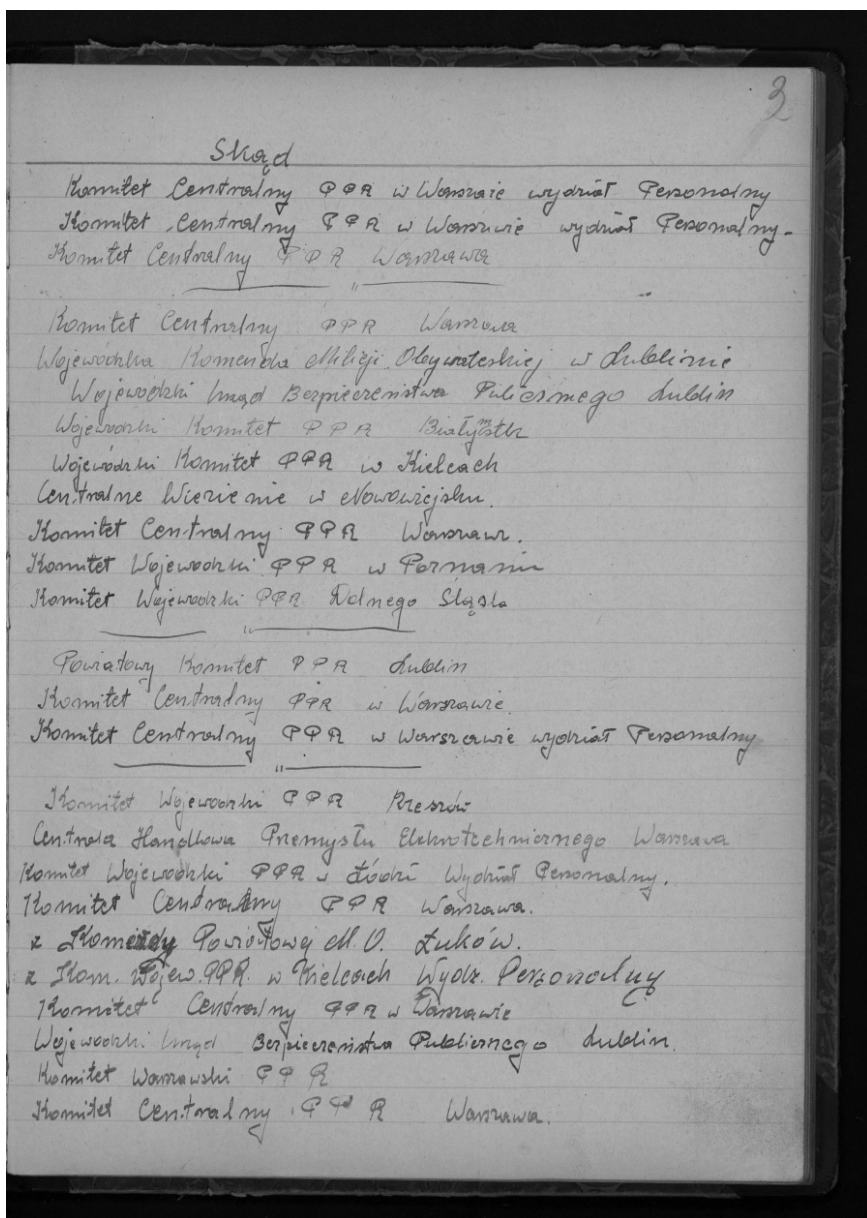 3
Skąd
Komitet Centralny PPR w Warszaie wydział Personalny
Komitet Centralny PPR w Warszwie wydział Personalny-
Komitet Centralny PPR Warszawa
"
Komitet Centralny PPR Warszawa
Wojewódzka Komenda Milicji Obywateskiej w Lublinie
Wojewodzki Urząd Bezpieczeństwa Publicznego Lublin
Wojewodzki Komitet PPR Białymstk
Wojewódzki Komitet PPR w Kielcach
Centralne Wiezienie w
Komitet Centralny PPR Warszawa.
Komitet Wojewodzki PPR w Poznaniu
Komitet Wojewodzki PPR Dolnego Śląska
"
Powiatowy Komitet PPR Lublin
Komitet Centralny PPR w Warszawie.
Komitet Centralny PPR w Warszawie wydział Personalny
"
Komitet Wojewodzki PPR Rzeszów
Centrala Handlowa Przemysłu Elektrotechnicznego Warszawa
Komitet Wojewódzki PPR w Łódzi Wydział Personalny.
Komitet Centralny PPR Warszawa.
z Komedy Powiatowej M.O. Łuków.
z Kom. Wojew. PPR. w Kielcach Wydz. Personalny
Komitet Centralny PPR w Warszawie
Wojewodzki Urząd Bezpieczeństwa Publicznego Lublin.
Komitet Warszawski PPR
Komitet Centralny PPR Warszawa.